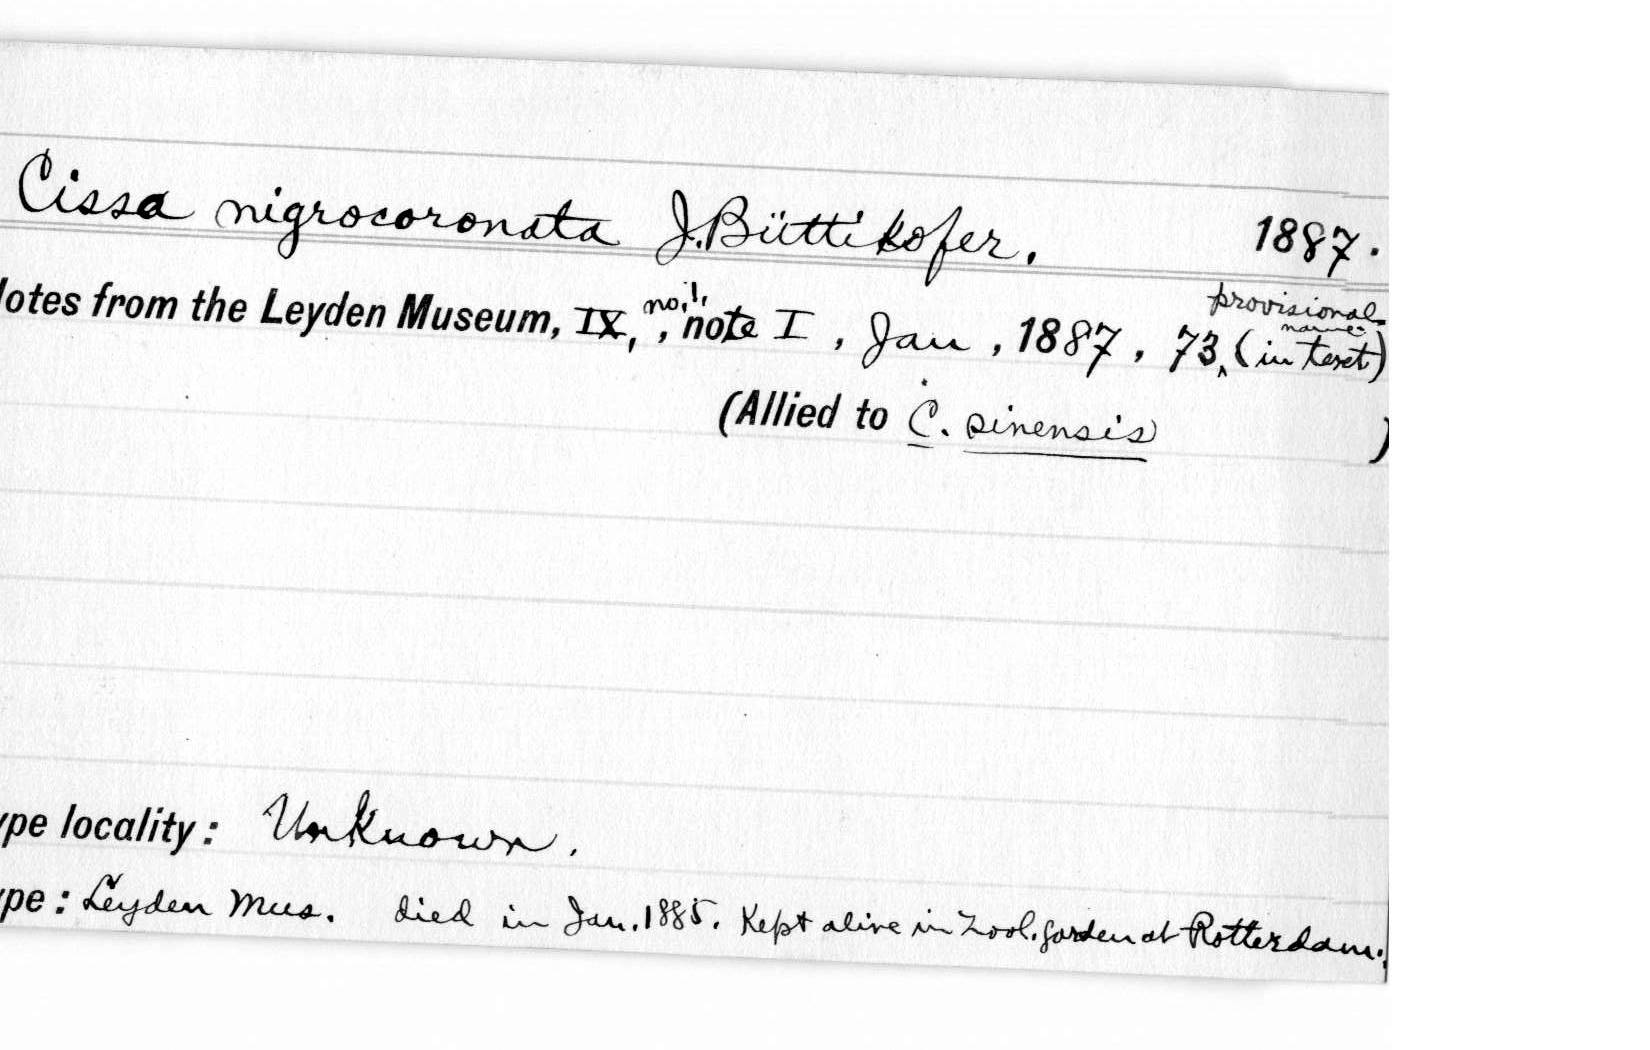 Cissa nigrocoronata J. Büttikofer. 1887.
lotes from the Leyden Museum, IX, no. 1, note I, Jan, 1887, 73, provisional name (in text)
(Allied to C. sinensis)
ype locality: Unknown.
ype: Leyden Mus. died in Jan. 1885. Kept alive in Zool. garden at Rotterdam.